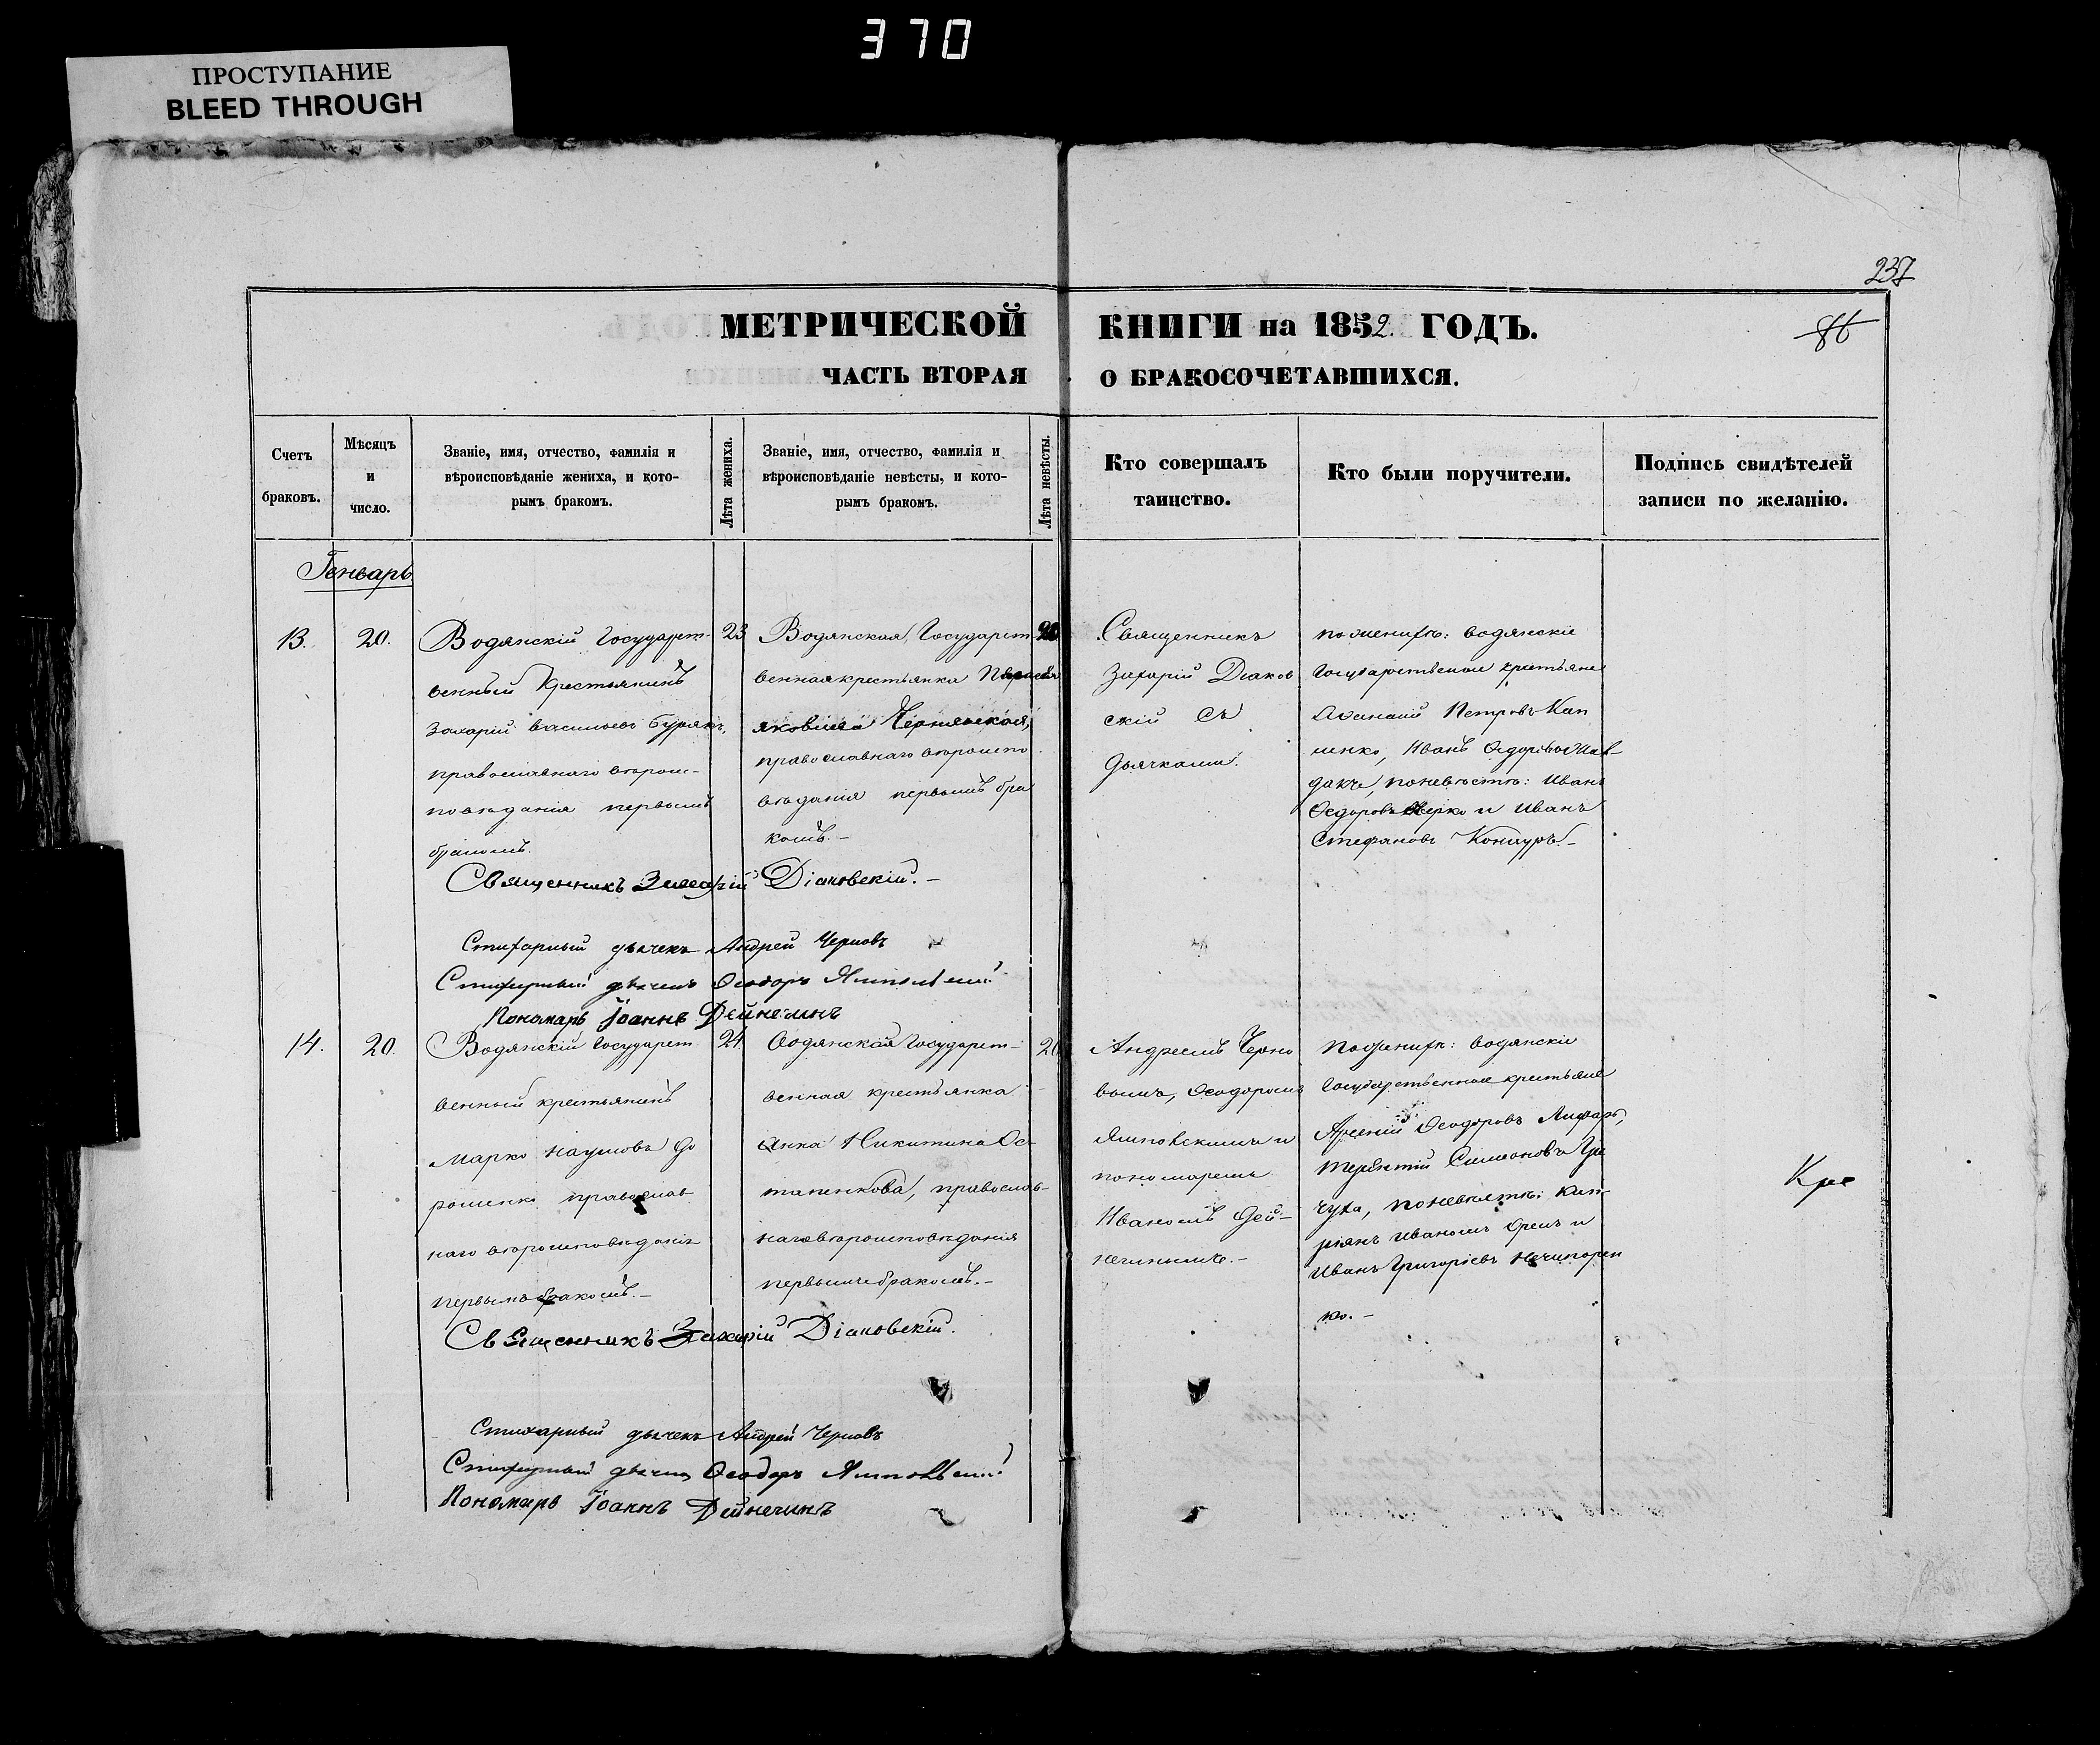 370
ПРОСТУПАНИЕ
BLEED THROUGH
237
86
МЕТРИЧЕСКОЙ КНИГИ на 1852. ГОДЪ.
ЧАСТЬ ВТОРАЯ О БРАКОСОЧЕТАВШИХСЯ.
Счетъ
браковъ.
Мѣсяцъ
и
число.
Званіе, имя, отчество, фамилія и
вѣроисповѣданіе жениха, и кото-
рымъ бракомъ.
Лѣта жениха.
Званіе, имя, отчество, фамилія и
вѣроисповѣданіе невѣсты, и кото-
рымъ бракомъ.
Лѣта невѣсты.
Кто совершалъ
таинство.
Кто были поручители.
Подпись свидѣтелей
записи по желанію.
Генварь
13.
20.
Водянскій Государст-
венный Крестьянинъ
Захарій Васильевъ Бурякъ,
православнаго вѣроис-
повѣданія первымъ
бракомъ.
23
Водянская Государст
венная крестьянка
яковлева Чернявская,
православнаго вѣроиспо
вѣданія первымъ бра
комъ.-
20
Священникъ
Захарій Діаков
скій съ
дьячками.
по женихѣ: водянскіе
Государственные крестьяне
Аѳанасій Петровъ Кап
ленко, Иванъ Ѳедоровъ
по невѣстѣ: Иванъ
Ѳедоровъ и Иванъ
Стефановъ
Священникъ Захарій Діаковскій.-
Стихарный дьячекъ Андрей Черновъ
Стихарный дьячекъ Ѳеодоръ Ямповскій
Пономарь Іоаннъ Дейнечинъ
14.
20.
Водянскій Государст
венный крестьянинъ
Марко Наумовъ До
рошенко православ
наго вѣроисповѣданія
первымъ бракомъ.-
24.
Водянская Государст-
венная крестьянка
Анна Никитина Ос-
тапенкова, православ-
наго вѣроисповѣданія
первымъ бракомъ.-
20
Андреемъ Черно
вымъ, Ѳеодоромъ
Ямповскимъ и
пономаремъ
Иваномъ Дей-
нечинымъ.-
По женихѣ: водянскіе
Государственные крестьяне
Арсеній Ѳеодоровъ Лифарь,
Терентій Симеоновъ Гре
чуха, по невѣстѣ: Кип-
ріянъ Ивановъ и
Иванъ Григоріевъ Нечипорен
ко.-
Кре
Священникъ Захарій Діаковскій.
Стихарный дьячекъ Андрей Черновъ
Стихарный дьячекъ Ѳеодоръ Ямповскій
Пономарь Іоаннъ Дейнечинъ